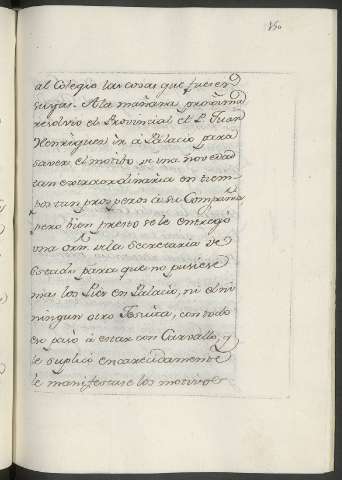 150
al Colegio las cosas que fuesen
suyas. A la mañana proxima
resolvio el Provincial el P. Juan
Henriquez ir a Palacio para
saver el motibo de una novedad
tan extraordinaria en tiem
pos tan prosperos a su Compañia
pero bien presto se le entregó
una orn. de la Secretaria de
Estado para que no pusiese
mas los Pies en Palacio, ni el ni
ningun otro Jesuita, con todo
eso pasó á estar con Carvallo, y
le suplicó encarecidamente
le manifestase los motivos